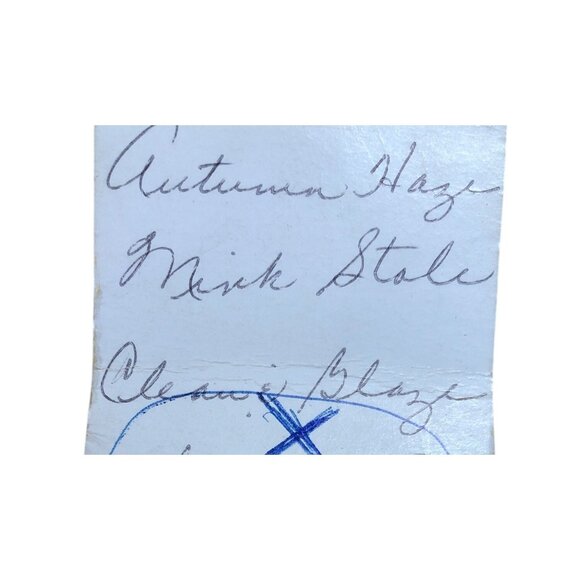 Autumn Haze
Mink Stole
Clean & Glaze